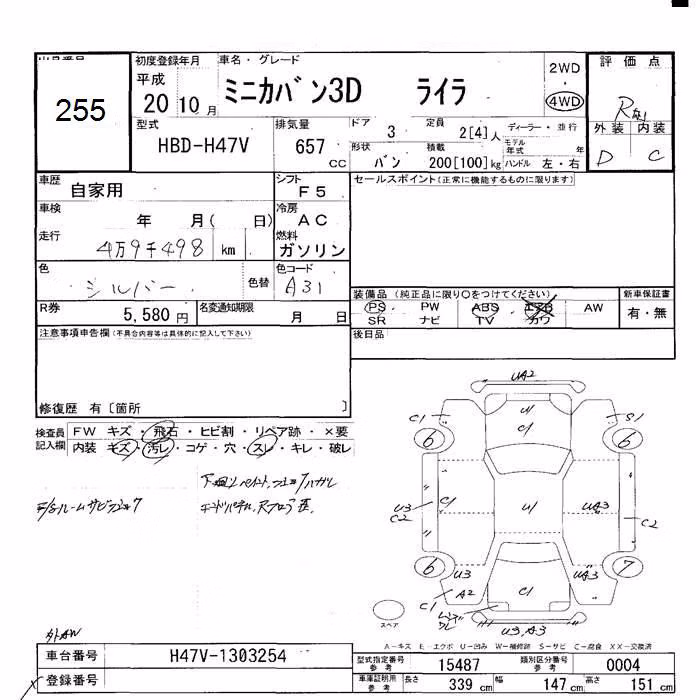 255
初度登録年月
平成
20 10 月
車名・グレード
ミニカバン3D ライラ
2WD
4WD
評価点
R
外装 内装
D C
型式
HBD-H47V
排気量
657
CC
ドア
3
定員
2[4]人
ディーラー・並行
形状
バン
積載
200[100]kg
モデル年式 年
ハンドル 左・右
車歴
自家用
シフト
F5
セールスポイント(正常に機能するものに限ります)
車検
年 月( 日)
冷房
AC
走行
4万9千498 km
燃料
ガソリン
色
シルバー
色替
色コード
A31
R券
5,580円
名変通知期限
月 日
装備品(純正品に限り○をつけてください)
PS PW ABS エアB AW
SR ナビ TV カワ
新車保証書
有・無
注意事項申告欄(不具合内容等は具体的に記入して下さい)
後日品
修復歴 有〔箇所 〕
検査員記入欄
FW キズ・飛石・ヒビ割・リペア跡・×要
内装 キズ・汚レ・コゲ・穴・スレ・キレ・破レ
UA2
C1
S1
U1
C1
6
6
U3
C2
C1
U1
UA3
C2
6
7
U3
UA3
C1
A2
C1
U3,A3
スペア
外AW
A-キズ E-エクボ U-凹み W-補修跡 S-サビ C-腐食 XX-交換済
車台番号
H47V-1303254
型式指定番号 参考
15487
類別区分番号 参考
0004
登録番号
車庫証明用 参考
長さ 339 cm
幅 147 cm
高さ 151 cm